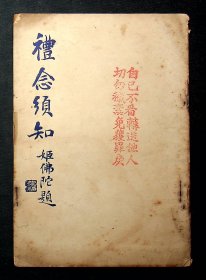 自己不看轉送他人
切勿褻瀆免獲罪戾
禮念須知
姬佛陀題